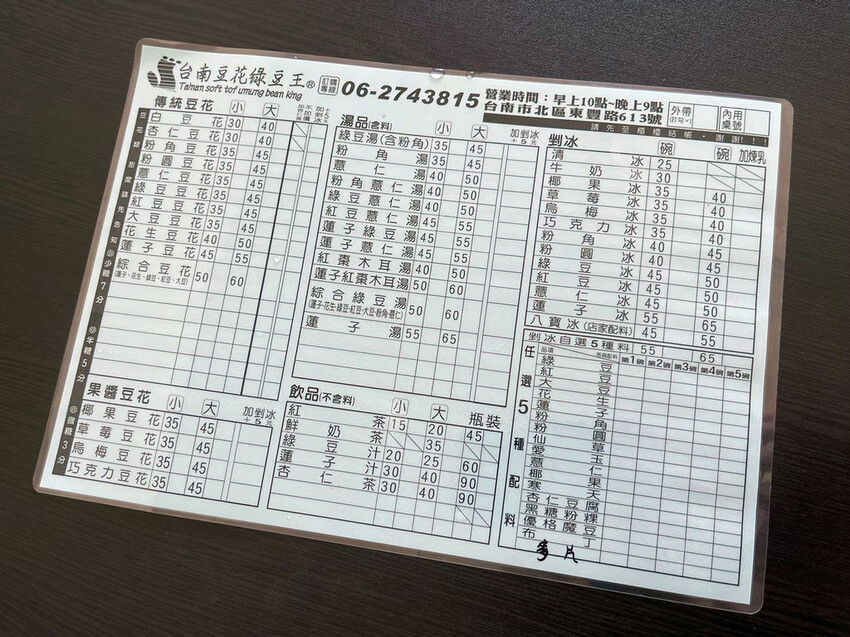 台南豆花綠豆王®
Tainan soft tof umung bean king
訂購專線 06-2743815
營業時間：早上10點~晚上9點
台南市北區東豐路613號
外帶(打勾v) 內用桌號
請先至櫃檯結帳，謝謝!!!
傳統豆花 小 大 加剉冰+5元
白豆花 30 40
杏仁豆花 30 45
粉角豆花 35 45
粉圓豆花 35 45
薏仁豆花 35 45
綠豆豆花 35 45
紅豆豆花 35 45
大豆豆花 35 45
花生豆花 40 50
蓮子豆花 45 55
綜合豆花 50 60
(蓮子、花生、綠豆、紅豆、大豆)
◎少糖7分 ◎半糖5分 ◎微糖3分
果醬豆花 小 大 加剉冰+5元
椰果豆花 35 45
草莓豆花 35 45
烏梅豆花 35 45
巧克力豆花 35 45
湯品(含料) 小 大 加剉冰+5元
綠豆湯(含粉角) 35 45
粉角湯 35 45
薏仁湯 40 50
粉角薏仁湯 40 50
綠豆薏仁湯 40 50
紅豆薏仁湯 45 55
蓮子綠豆湯 45 55
蓮子薏仁湯 45 55
紅棗木耳湯 40 50
蓮子紅棗木耳湯 50 60
綜合綠豆湯 50 60
(蓮子·花生·綠豆·紅豆·大豆·粉角·薏仁)
蓮子湯 55 65
飲品(不含料) 小 大 瓶裝
紅茶 15 20 45
鮮奶茶 35
綠豆汁 20 25 60
蓮子汁 30 40 90
杏仁茶 30 40 90
剉冰 碗 碗 加煉乳
清冰 25
牛奶冰 30
椰果冰 35 40
草莓冰 35 40
烏梅冰 35 40
巧克力冰
粉角冰 40 45
粉圓冰 40
綠豆冰
紅豆冰
薏仁冰
蓮子冰
八寶冰(店家配料)
剉冰自選5種料 55 65
任選5種配料
品項 第1碗 第2碗 第3碗 第4碗 第5碗
綠豆
紅豆
大豆
花生
蓮子
粉角
粉圓
仙草
愛玉
薏仁
椰果
寒天
杏仁豆腐
黑糖粉粿
優格魔豆
布丁
麥片